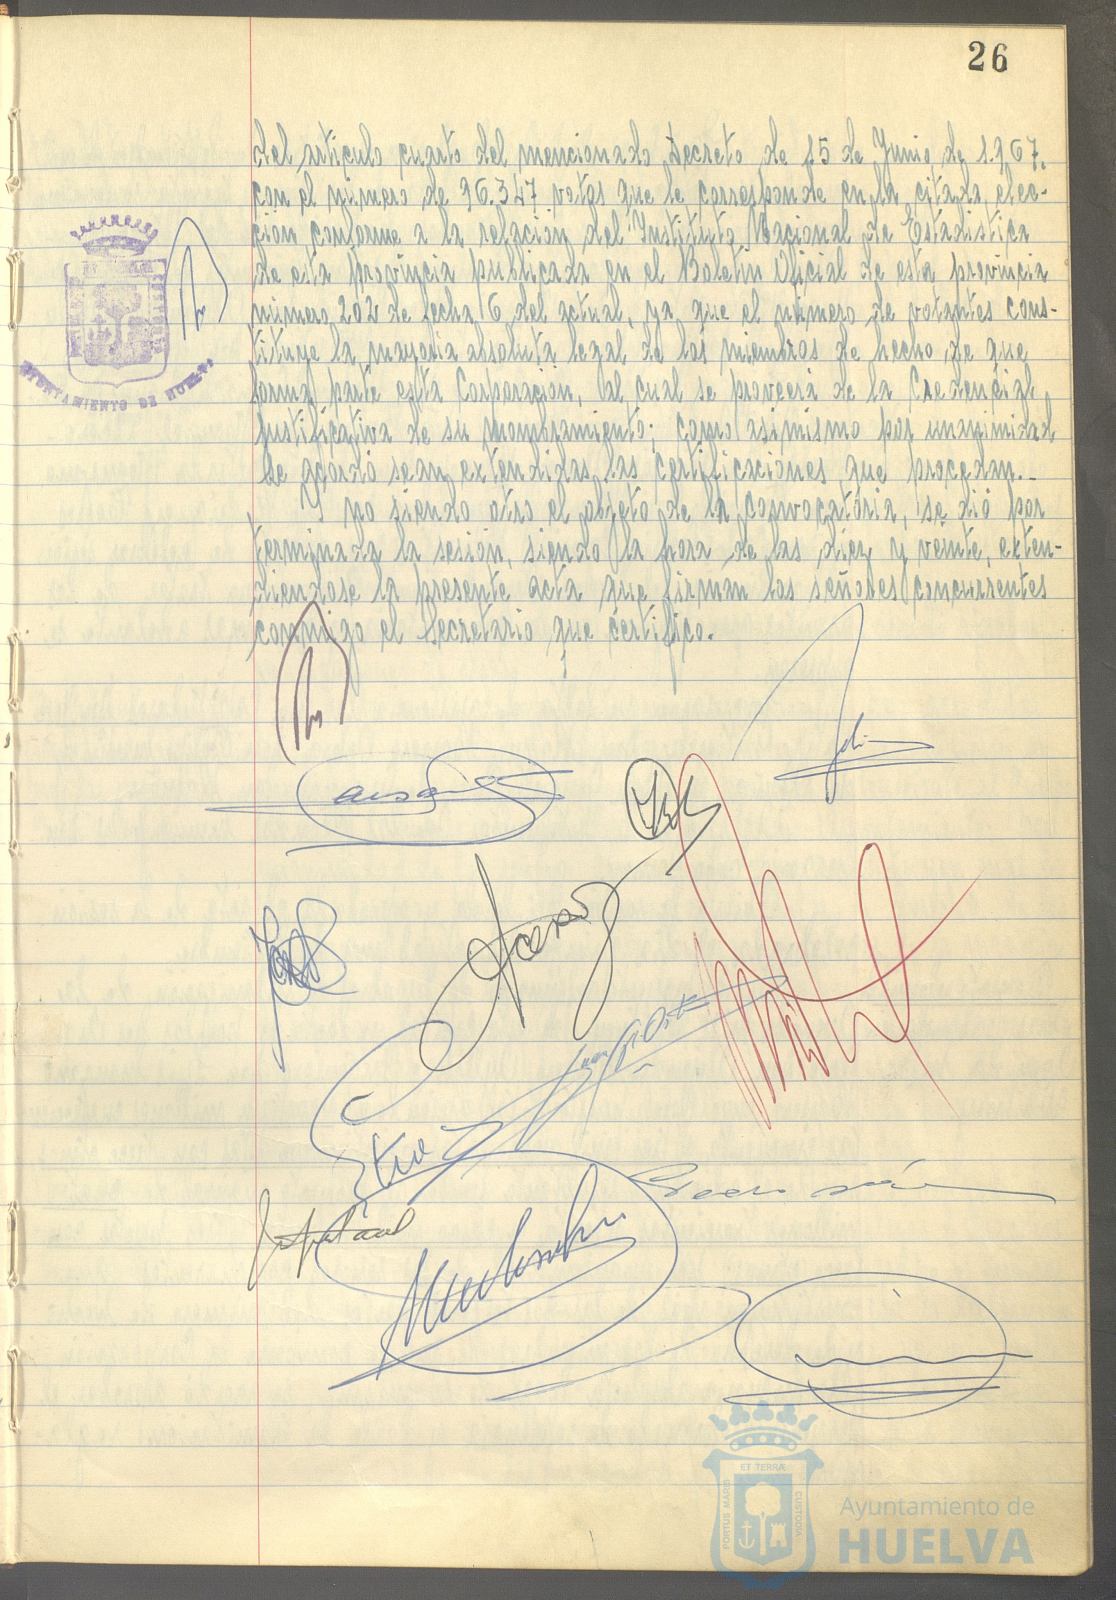 26
del artículo cuarto del mencionado Decreto de 15 de Junio de 1.967.
con el número de 96.347 votos que le corresponde en la citada elec-
ción conforme a la relación del Instituto Nacional de Estadística
de esta Provincia publicada en el Boletín Oficial de esta provincia
número 202 de fecha 6 del actual, ya que el número de votantes cons-
tituye la mayoría absoluta legal de los miembros de hecho de que
forma parte esta Corporación, al cual se proveerá de la Credencial
justificativa de su nombramiento; como asimismo por unanimidad
se acordó sean extendidas las certificaciones que procedan.-
Y no siendo otro el objeto de la convocatoria, se dió por
terminada la sesión, siendo la hora de las diez y veinte, exten-
diendose la presente acta que firman los señores concurrentes
conmigo el Secretario que certifico.
AYUNTAMIENTO DE HUELVA
PORTUS MARIS
ET TERRÆ
CUSTODIA
Ayuntamiento de
HUELVA